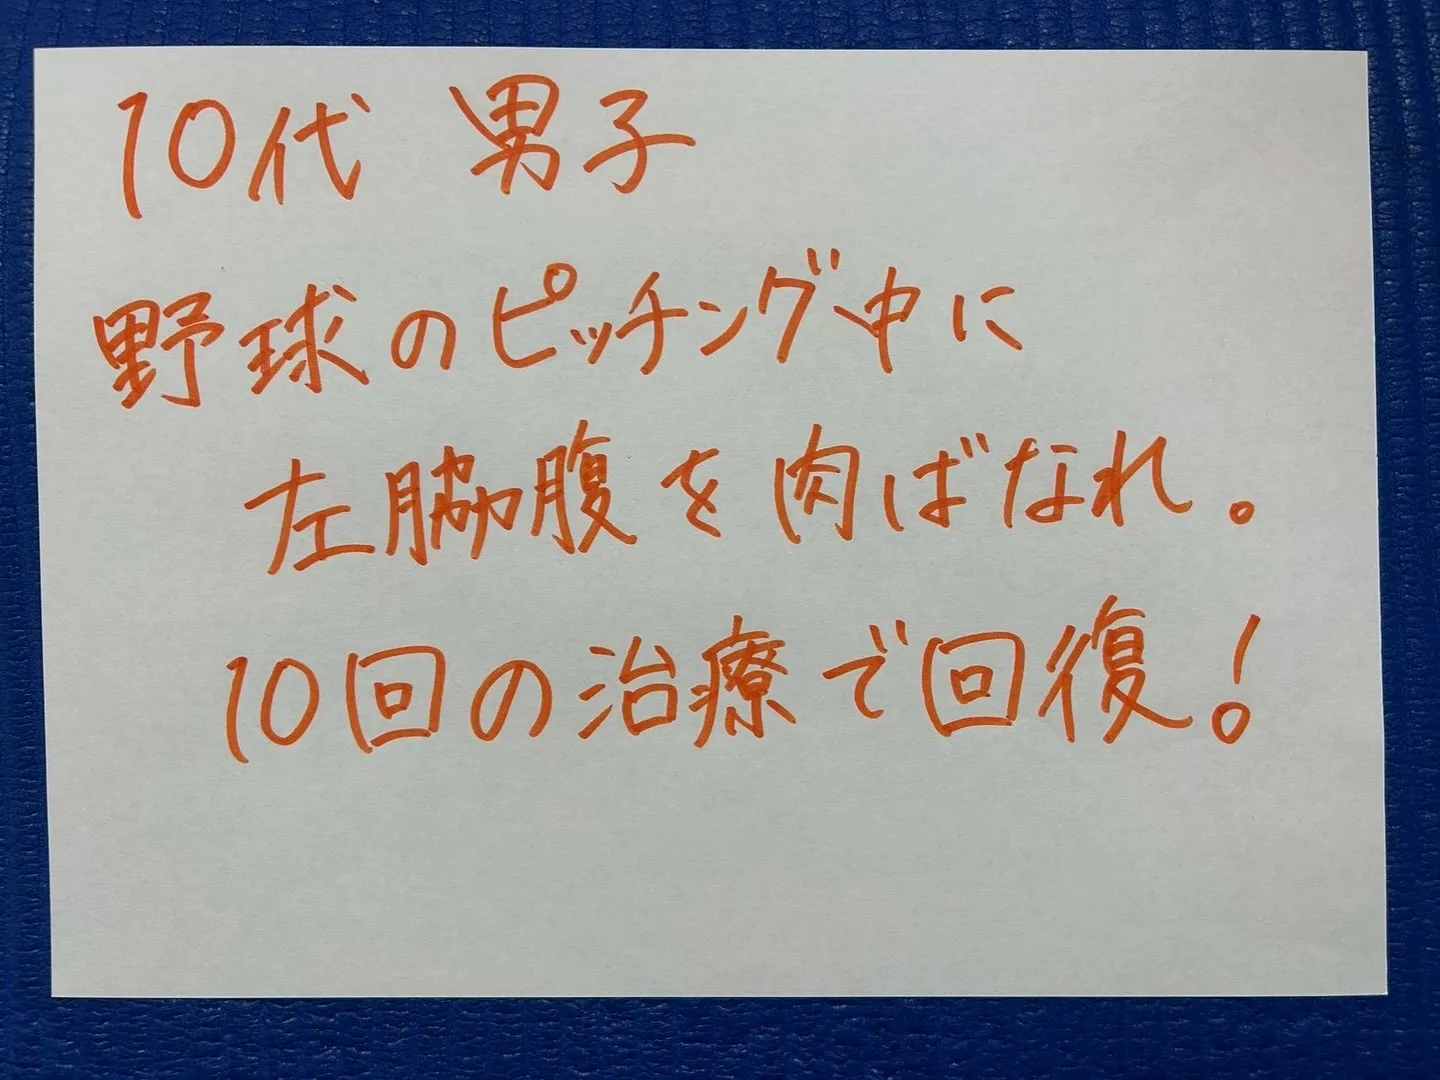 10代 男子
野球のピッチング中に
左脇腹を肉ばなれ。
10回の治療で回復!